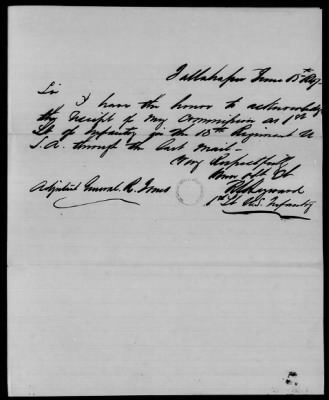 Tallahassee June 15th 1847
Sir
I have the honor to acknowledge
the receipt of my Commission as 1st
Lt of Infantry in the 13th Regiment U
S. A. through the last mail—
Very Respectfully
Your Obt St
Adjutant General R. Jones
Heyward
1st Lt U.S. Infantry